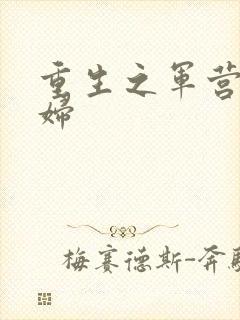 重生之军营
妇
梅赛德斯-奔